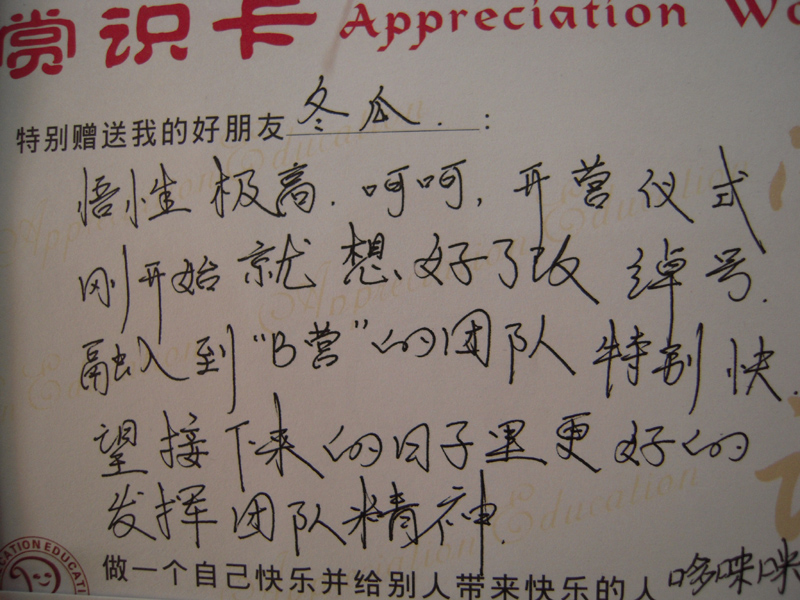 赏识卡 Appreciation Wo
特别赠送我的好朋友 冬瓜. :
悟性极高. 呵呵, 开营仪式
刚开始就想好了改绰号.
融入到"B营"的团队特别快.
望接下来的日子里更好的
发挥团队精神.
做一个自己快乐并给别人带来快乐的人 哆咪咪